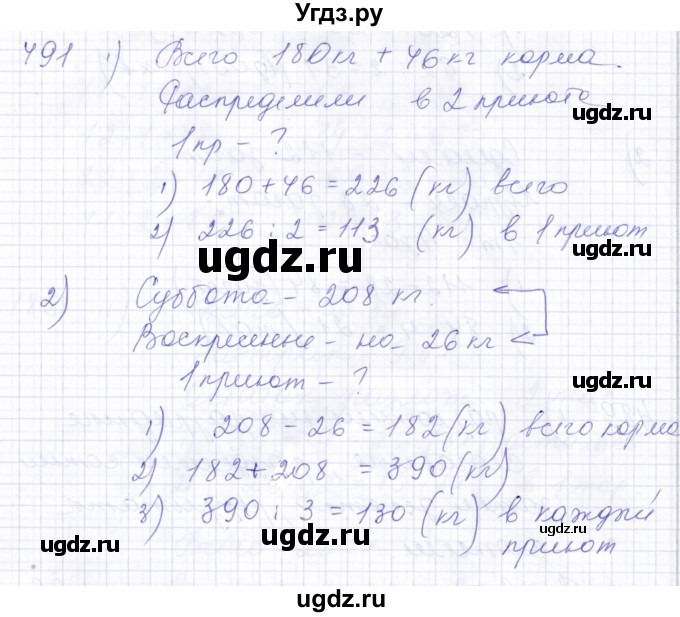 Угдз.ру
491 1) Всего 180кг + 46кг корма.
Распределили в 2 приюта
1 пр - ?
1) 180 + 46 = 226 (кг) всего
2) 226 : 2 = 113 (кг) в 1 приют
2) Суббота - 208 кг.
Воскресенье - на 26 кг <
1 приют - ?
1) 208 - 26 = 182 (кг) всего корма
2) 182 + 208 = 390 (кг)
3) 390 : 3 = 130 (кг) в каждый
приют
ugdz.ru
ugdz.ru
ugdz.ru
ugdz.ru
ugdz.ru
ugdz.ru
ugdz.ru
ugdz.ru
ugdz.ru